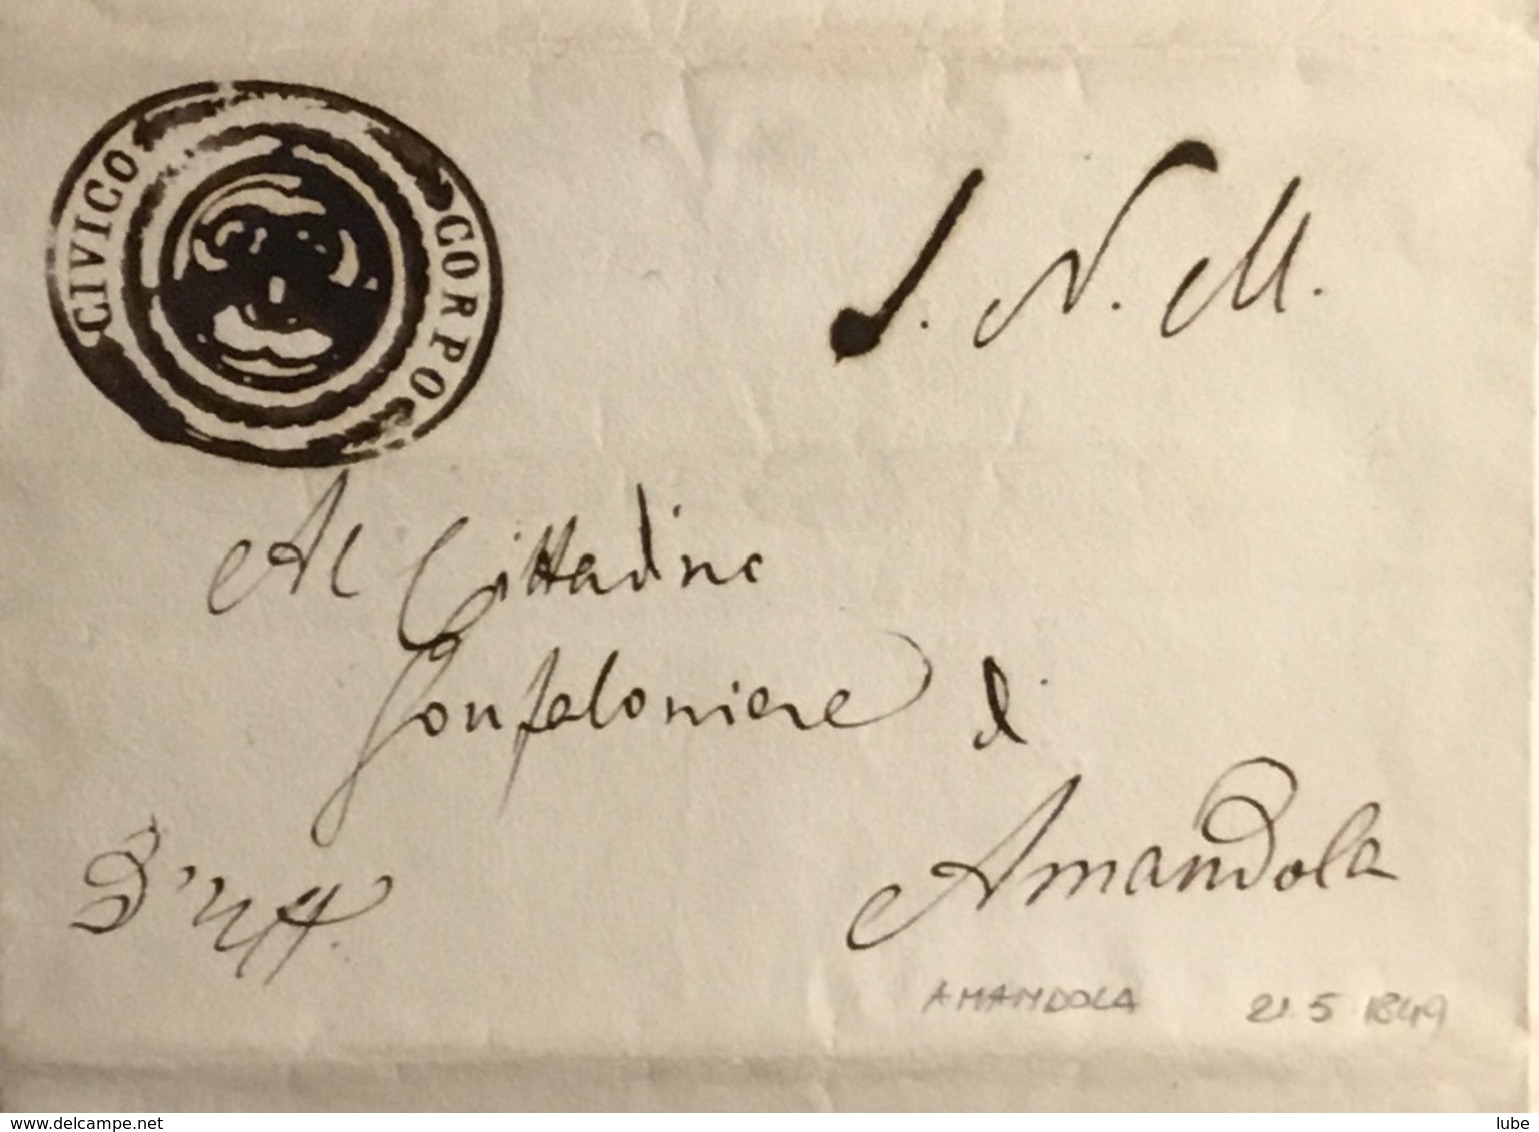 CIVICO CORPO
S. N. M.
Al Cittadino
Gonfaloniere di
Amandola
D'uff.
AMANDOLA 21 5 1849
www.delcampe.net
lube